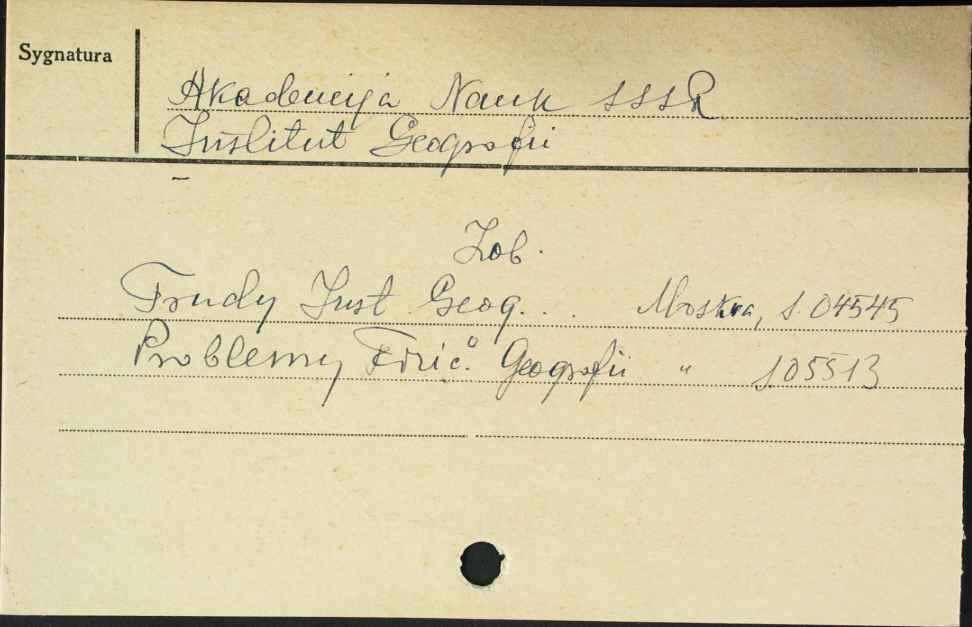 Sygnatura
Akademija Nauk SSSR
Institut Geografii
Zob.
Trudy Inst Geog... Moskva, S. 04545
Problemy Fizič. Geografii " S 05513